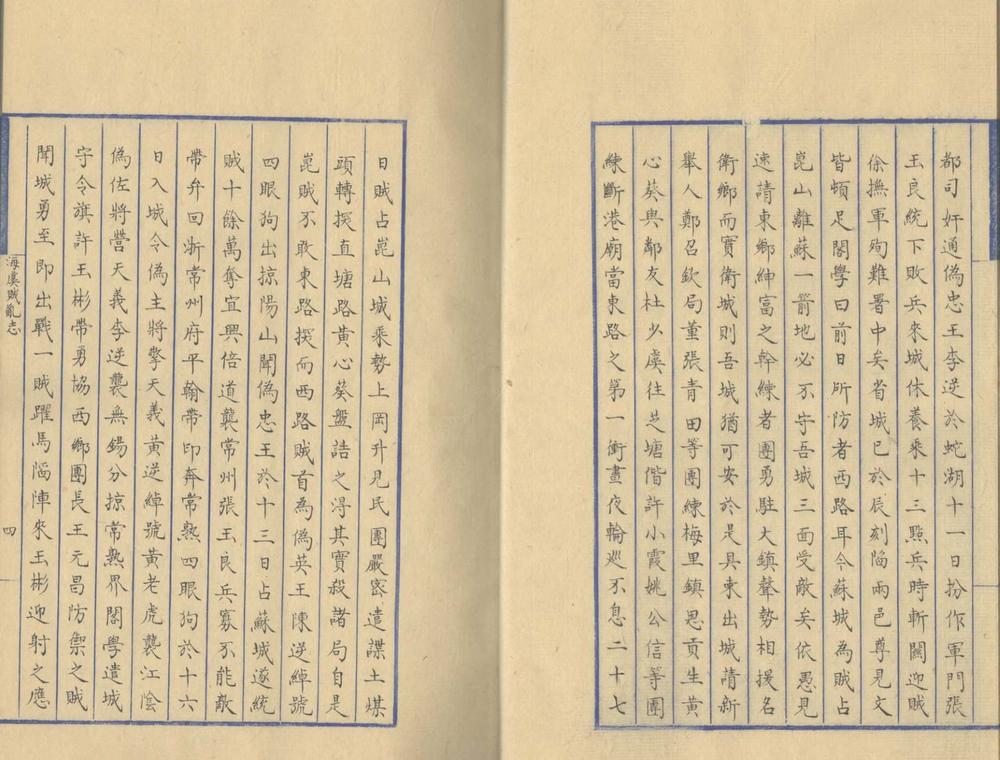 都司奸通偽忠王李逆於蛇湖十一日扮作軍門張
玉良統下敗兵來城休養乘十三點兵時斬關迎賊
徐撫軍殉難署中矣省城已於辰刻陷兩邑尊見文
皆頓足閣學曰前日所防者西路耳今蘇城為賊占
崑山離蘇一箭地必不守吾城三面受敵矣依愚見
速請東鄉紳富之幹練者團勇駐大鎮聲勢相援名
衛鄉而實衛城則吾城猶可安於是具柬出城請新
舉人鄭召欽局董張青田等團練梅里鎮恩貢生黄
心葵與鄰友杜少虞往芝塘偕許小霞姚公信等團
練斷港廟當東路之第一衝晝夜輪巡不息二十七
日賊占崑山城乘勢上岡升見民團嚴密遣諜土煤
頭轉探直塘路黄心葵盤詰之得其實殺諸局自是
崑賊不敢東路探而西路賊首為偽英王陳逆綽號
四眼狗出掠陽山聞偽忠王於十三日占蘇城遂統
賊十餘萬奪宜興倍道襲常州張玉良兵寡不能敵
帶弁回浙常州府平翰帶印奔常熟四眼狗於十六
日入城令偽主將擎天義黄逆綽號黄老虎襲江陰
偽佐將營天義李逆襲無錫分掠常熟界閣學遣城
守令旗許玉彬帶勇協西鄉團長王元昌防禦之賊
聞城勇至即出戰一賊躍馬陷陣來玉彬迎射之應
海虞賊亂志
四